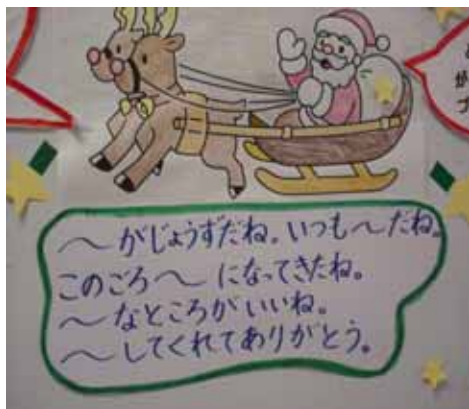 ～がじょうずだね。いつも～だね。
このごろ～になってきたね。
～なところがいいね。
～してくれてありがとう。